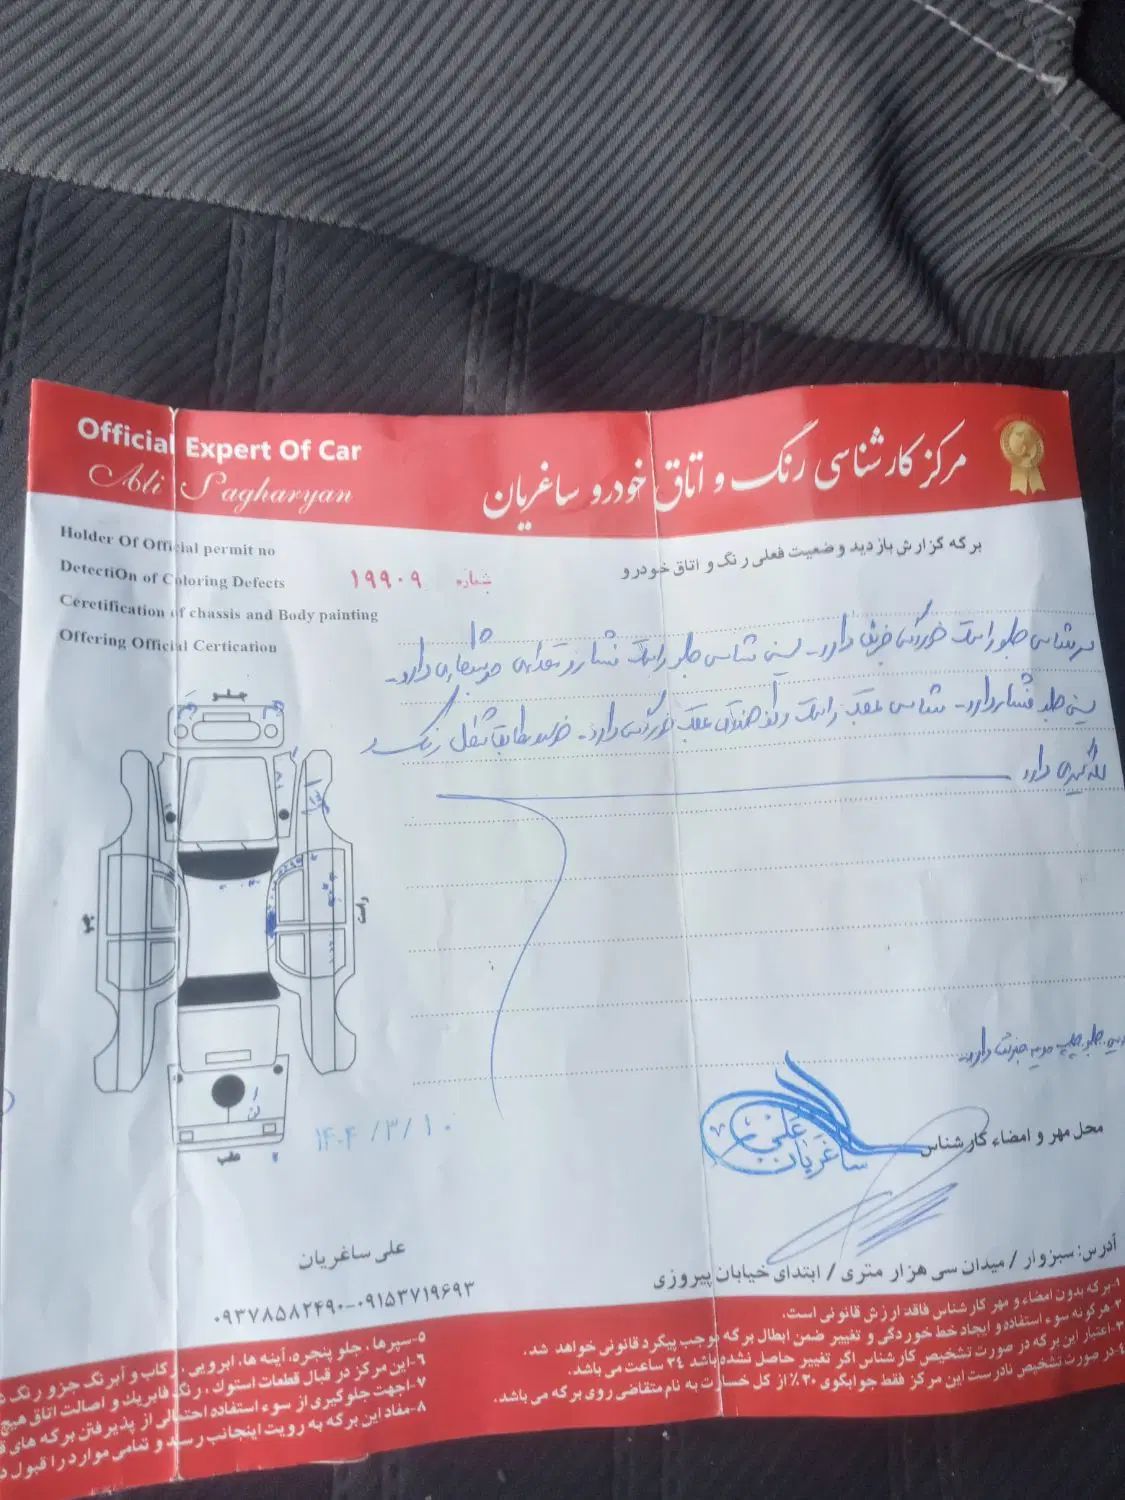 Official Expert Of Car
Ali Sagharyan
مرکز کارشناسی رنگ و اتاق خودرو ساغریان
Holder Of Official permit no
DetectiOn of Coloring Defects
Ceretification of chassis and Body painting
Offering Official Certication
شماره ۱۹۹۰۹
برگه گزارش بازدید وضعیت فعلی رنگ و اتاق خودرو
سرشاسی جلو راست خوردگی جزئی دارد - سینی شاسی جلو راست فشار و تعدادی دارد -
سینی جلو فشار دارد - شاسی عقب راست و کف صندوق عقب خوردگی دارد - خودرو مطابق شکل رنگ و
لکه گیری دارد
جلو
چپ
راست
عقب
جلو چپ جزئی دارد -
۱۴۰۴/۳/۱۰
محل مهر و امضاء کارشناس
علی ساغریان
علی ساغریان
۰۹۳۷۸۵۸۲۴۹۰-۰۹۱۵۳۷۱۹۶۹۳
آدرس: سبزوار / میدان سی هزار متری / ابتدای خیابان پیروزی
۱-برگه بدون امضاء و مهر کارشناس فاقد ارزش قانونی است.
۲-هرگونه سوء استفاده و ایجاد خط خوردگی و تغییر ضمن ابطال برگه موجب پیگرد قانونی خواهد شد.
۳-اعتبار این برگه در صورت تشخیص کارشناس اگر تغییر حاصل نشده باشد ۲۴ ساعت می باشد.
۴-در صورت تشخیص نادرست این مرکز فقط جوابگوی ۲۰٪ از کل خسارت به نام متقاضی روی برگه می باشد.
۵-سپرها، جلو پنجره، آینه ها، ابرویی، رکاب و آبرنگ جزو رنگ
۶-این مرکز در قبال قطعات استوک، رنگ فابریک و اصالت اتاق هیچ
۷-جهت جلوگیری از سوء استفاده احتمالی از پذیرفتن برگه های
۸-مفاد این برگه به رویت اینجانب رسید و تمامی موارد را قبول